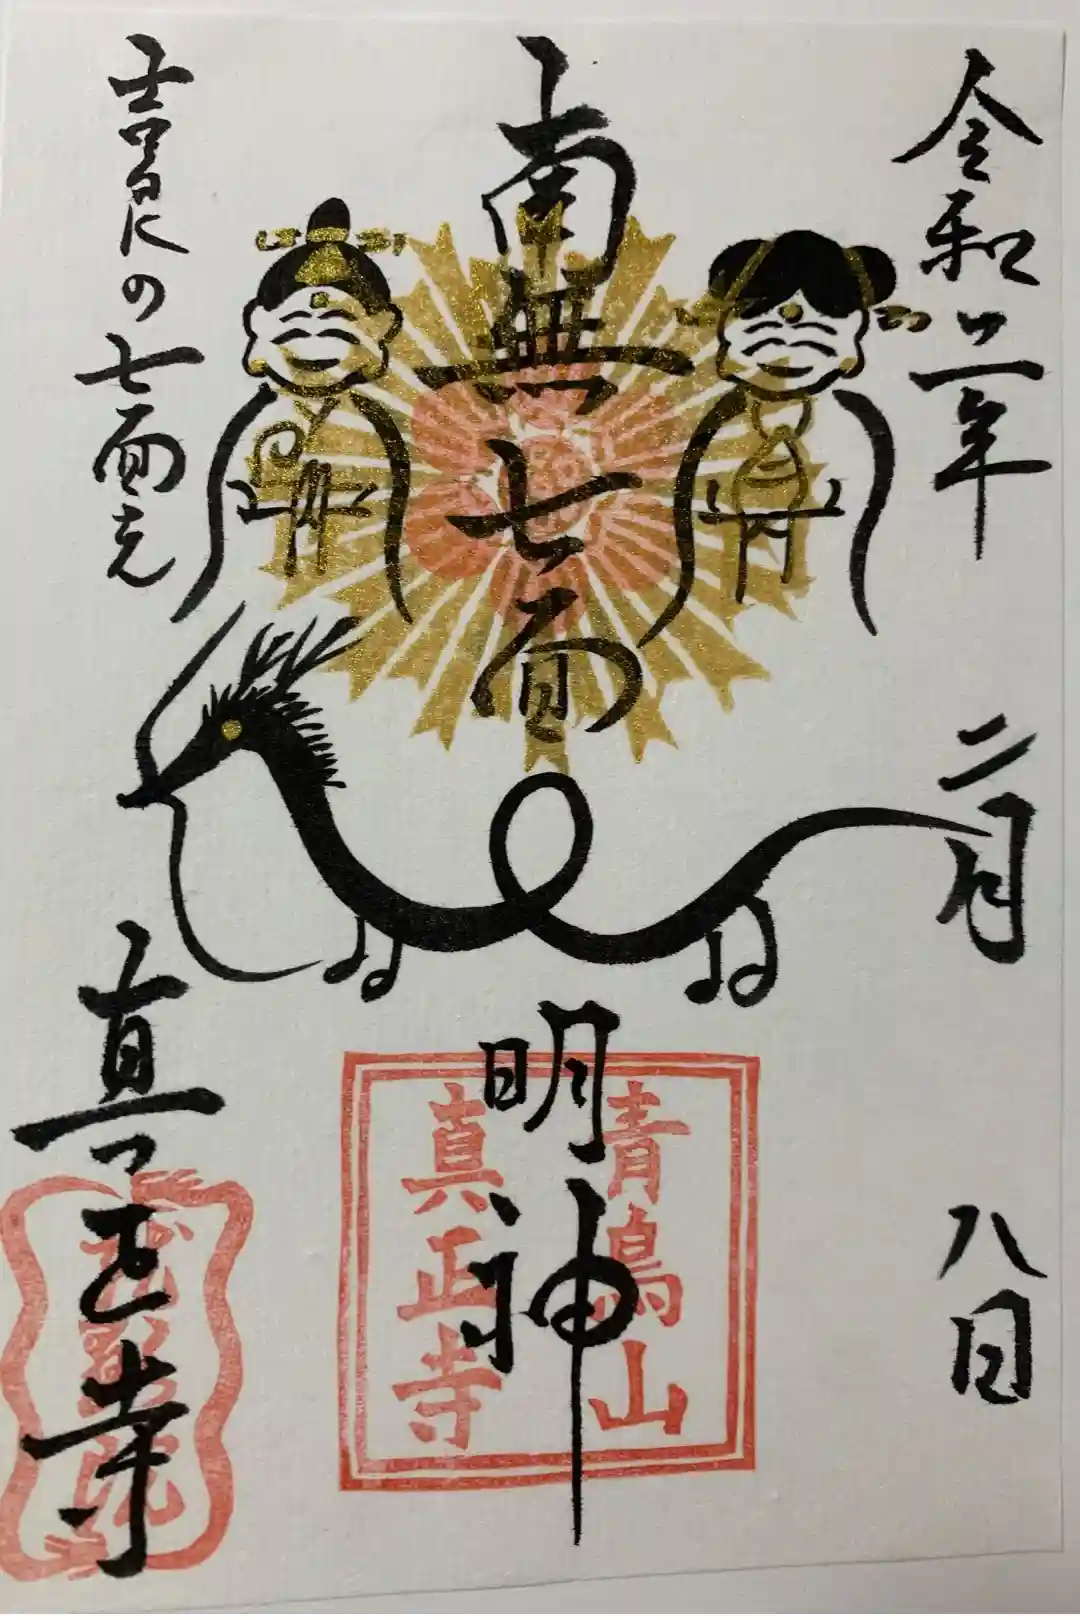 令和二年 二月 八日
南無七面
明神
青鳥山
真正寺
吉見の七面
真正寺